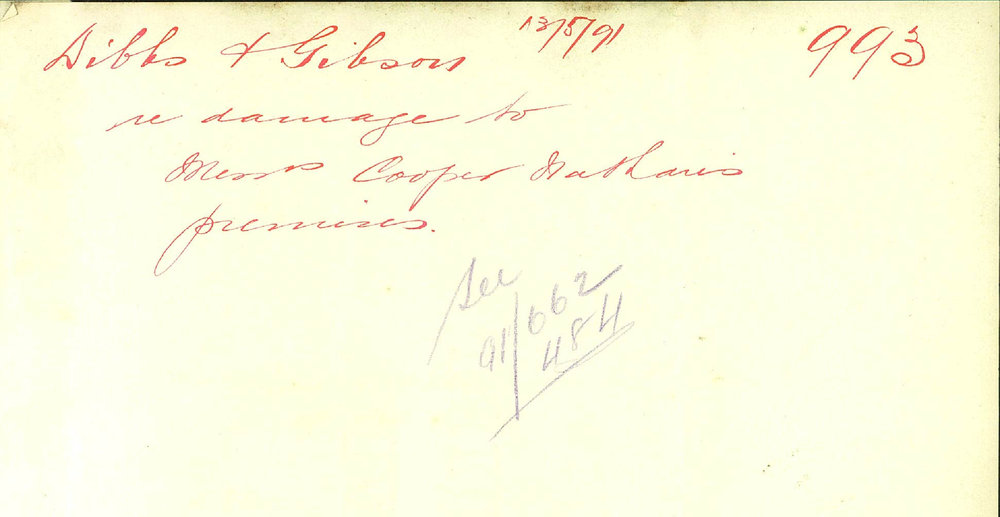 Dibbs & Gibson 13/5/91 993
re damage to
Messrs Cooper Nathan's
premises.
See
91/662
484